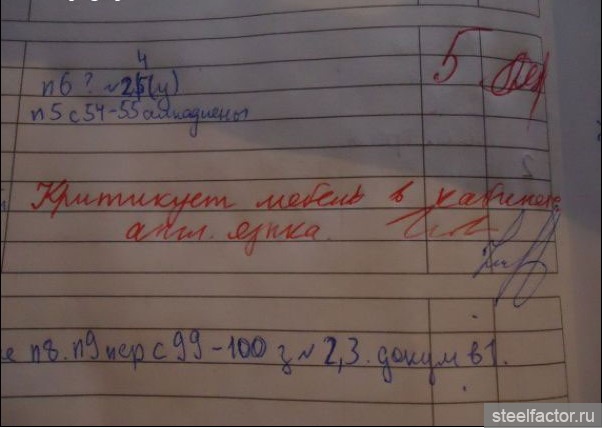 4
п6 ? №25(у) 5
п5 с 54-55 алкадиены
Критикует мебель в кабинете
англ. языка.
е п8. п9 пер с 99-100 з №2,3. докум в 1.
steelfactor.ru